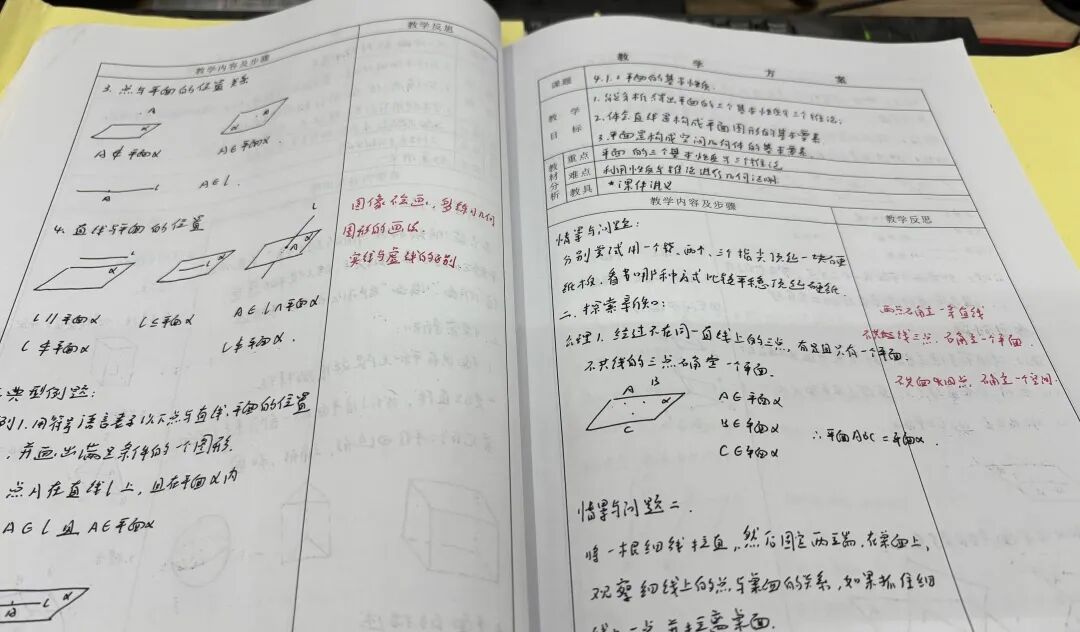 教学内容及步骤
教学反思
3. 点与平面的位置关系
A
α
α
A∉平面α
A∈平面α.
l
A∈l.
4. 直线与平面的位置
l
α
l
α
l
A
α
l∥平面α
l⊆平面α
A∈l∩平面α
l⊄平面α
l⊄平面α.
图像绘画,多练习几何
图形的画法
实线与虚线的区别
典型例题:
例1.用符号语言表示以下点与直线,平面的位置
,并画出满足条件的一个图形.
点A在直线l上,且在平面α内
A∈l且A∈平面α
A
l
α
教学方案
课题
4.1.2平面的基本性质.
教学目标
1.能分析得出平面的三个基本性质与三个推论;
2.体会直线是构成平面图形的基本要素
3.平面是构成空间几何体的基本要素.
教材分析
重点
平面的三个基本性质与三个推论
难点
利用性质与推论进行几何证明
教具
*课件讲义
教学内容及步骤
教学反思
情景与问题:
分别尝试用一个、两个、三个指尖顶起一块硬
纸板,看看哪种方式能平稳顶起硬纸
二、探索新知:
公理1.经过不在同一直线上的三点,有且只有一个平面.
不共线的三点确定一个平面.
两点确定一条直线
不共线三点,确定一个平面
不共面四点,确定一个空间.
A
B
α
C
A∈平面α
B∈平面α
C∈平面α
∴平面ABC=平面α.
情景与问题二.
将一根细线拉直,然后固定两端,在桌面上,
观察细线上的点与桌面的关系,如果抓住细
线上一点并拉离桌面.